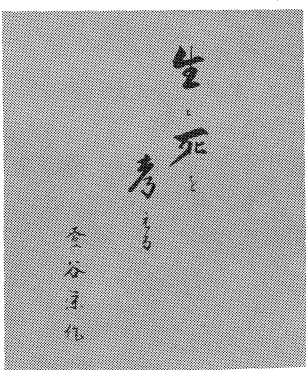 生と死を
考える
谷 作